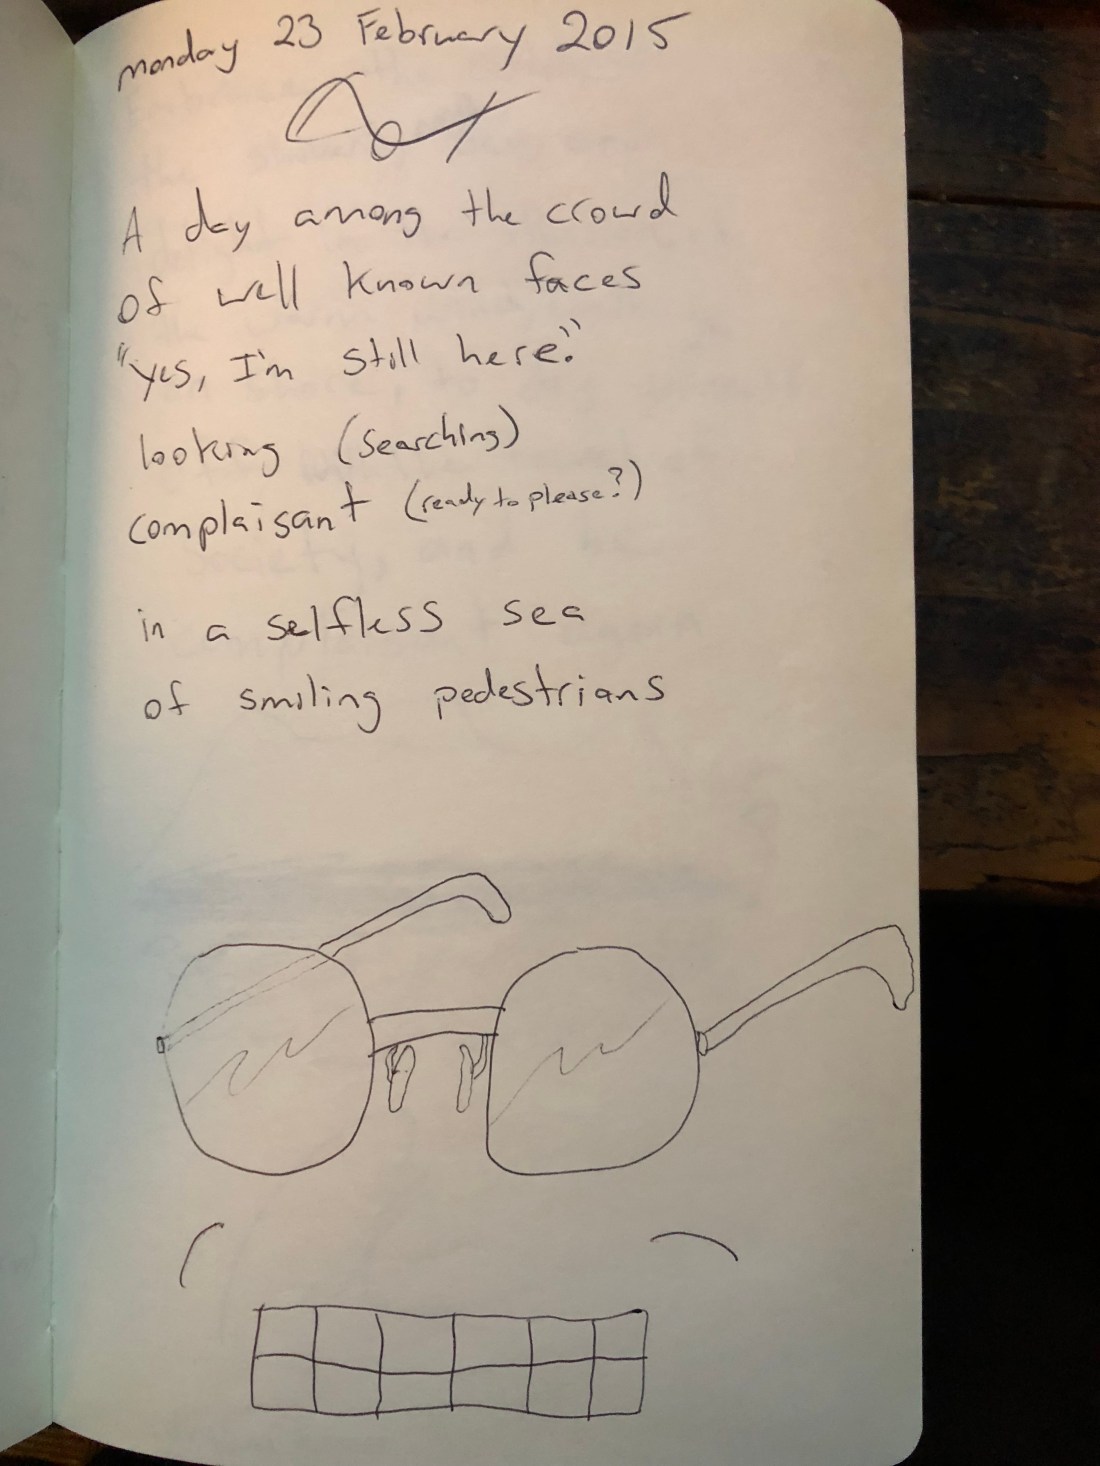 monday 23 February 2015
A day among the crowd
of well known faces
"yes, I'm still here."
looking (searching)
complaisant (ready to please?)
in a selfless sea
of smiling pedestrians